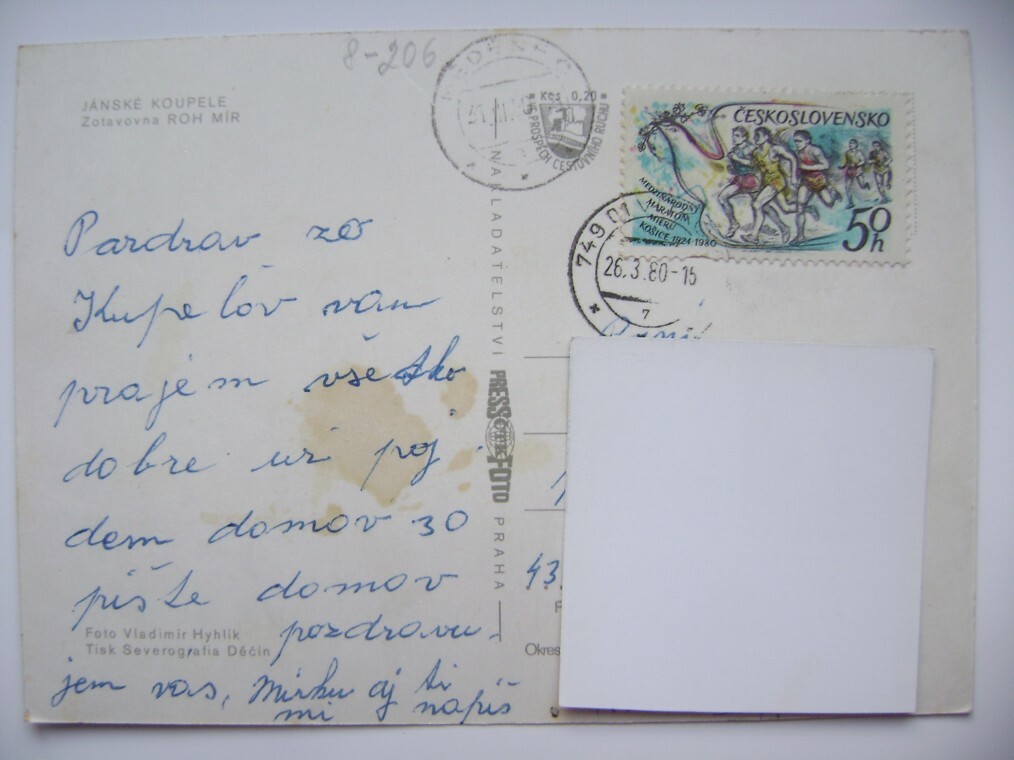 8-206
JÁNSKÉ KOUPELE
Zotavovna ROH MÍR
Kčs 0,20
VE PROSPĚCH CESTOVNÍHO RUCHU
ČESKOSLOVENSKO
MEDZINÁRODNÝ
MARATÓN
MIERU
KOŠICE 1924-1980
50 h
749 01
26.3.80-15
7
Pardrav zo
Kupelov vam
prajem všetko
dobre uz poj
dem domov 30
pište domov
pozdravu-
jem vas, Mirku aj ti
mi napiš
NAKLADATELSTVÍ
PRESSFOTO
PRAHA
43.
Okres
Foto Vladimír Hyhlík
Tisk Severografia Děčín